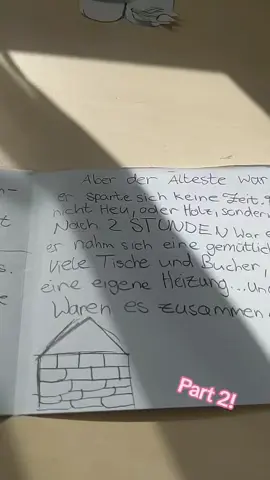 Aber der Älteste war
er sparte sich keine Zeit.
nicht Heu, oder Holz, sondern
Nach 2 STUNDEN war e
er nahm sich eine gemütlich
viele Tische und Bücher,
eine eigene Heizung...und
Waren es zusammen
Part 2!